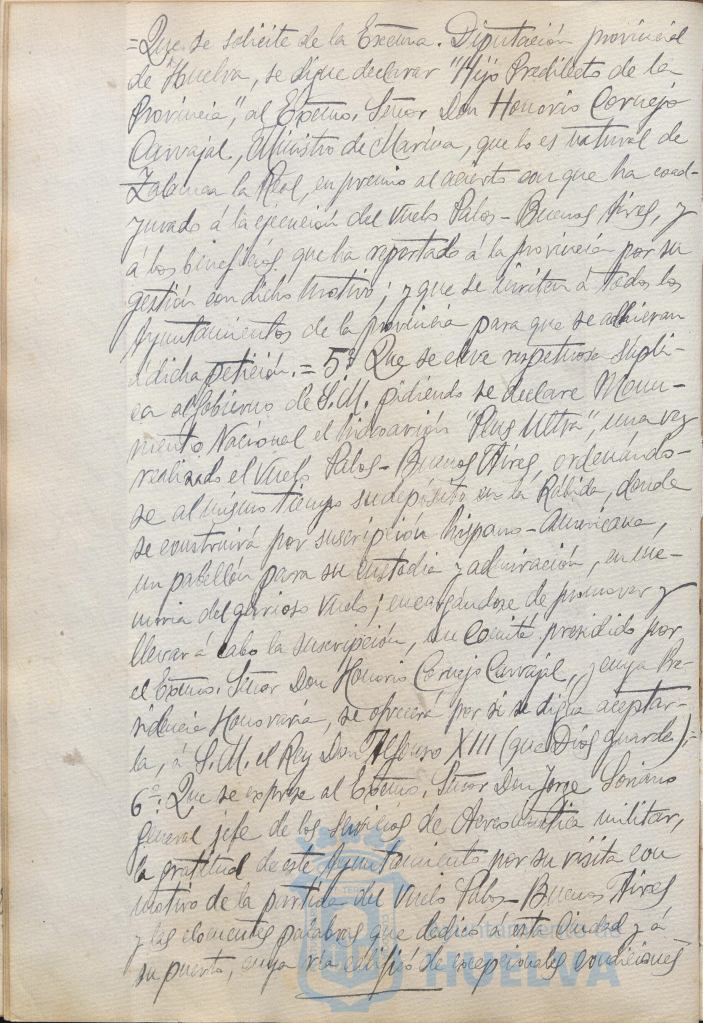 =Que se solicite de la Excma. Diputación provincial
de Huelva, se digne declarar "Hijo Predilecto de la
Provincia", al Excmo. Señor Don Honorio Cornejo
Carvajal, Ministro de Marina, que lo es natural de
Zalamea la Real, en premio al acierto con que ha coad-
yuvado á la ejecución del vuelo Palos-Buenos Aires, y
á los beneficios que ha reportado á la provincia por su
gestión con dicho motivo; y que se inviten á todos los
Ayuntamientos de la provincia para que se adhieran
á dicha petición.= 5º Que se eleve respetuosa súpli-
ca al Gobierno de S.M. pidiendo se declare Monu-
mento Nacional el hidroavión "Plus Ultra", una vez
realizado el vuelo Palos-Buenos Aires, ordenándo-
se al mismo tiempo su depósito en la Rábida, donde
se construirá por suscripción hispano-Americana,
un pabellón para su custodia y admiración, en me-
moria del glorioso vuelo; encargándose de promover y
llevar á cabo la suscripción, un Comité presidido por
el Excmo. Señor Don Honorio Cornejo Carvajal, y cuya Pre-
sidencia Honoraria, se ofrecerá por si se digna aceptar-
la, á S.M. el Rey Don Alfonso XIII (que Dios guarde).=
6º: Que se exprese al Excmo. Señor Don Jorge Soriano
general jefe de los servicios de Aeronáutica militar,
la gratitud de este Ayuntamiento por su visita con
motivo de la partida del vuelo Palos-Buenos Aires
y las elocuentes palabras que dedicó á esta Ciudad y á
su puerto, cuya ría calificó de excepcionales condiciones
HUELVA